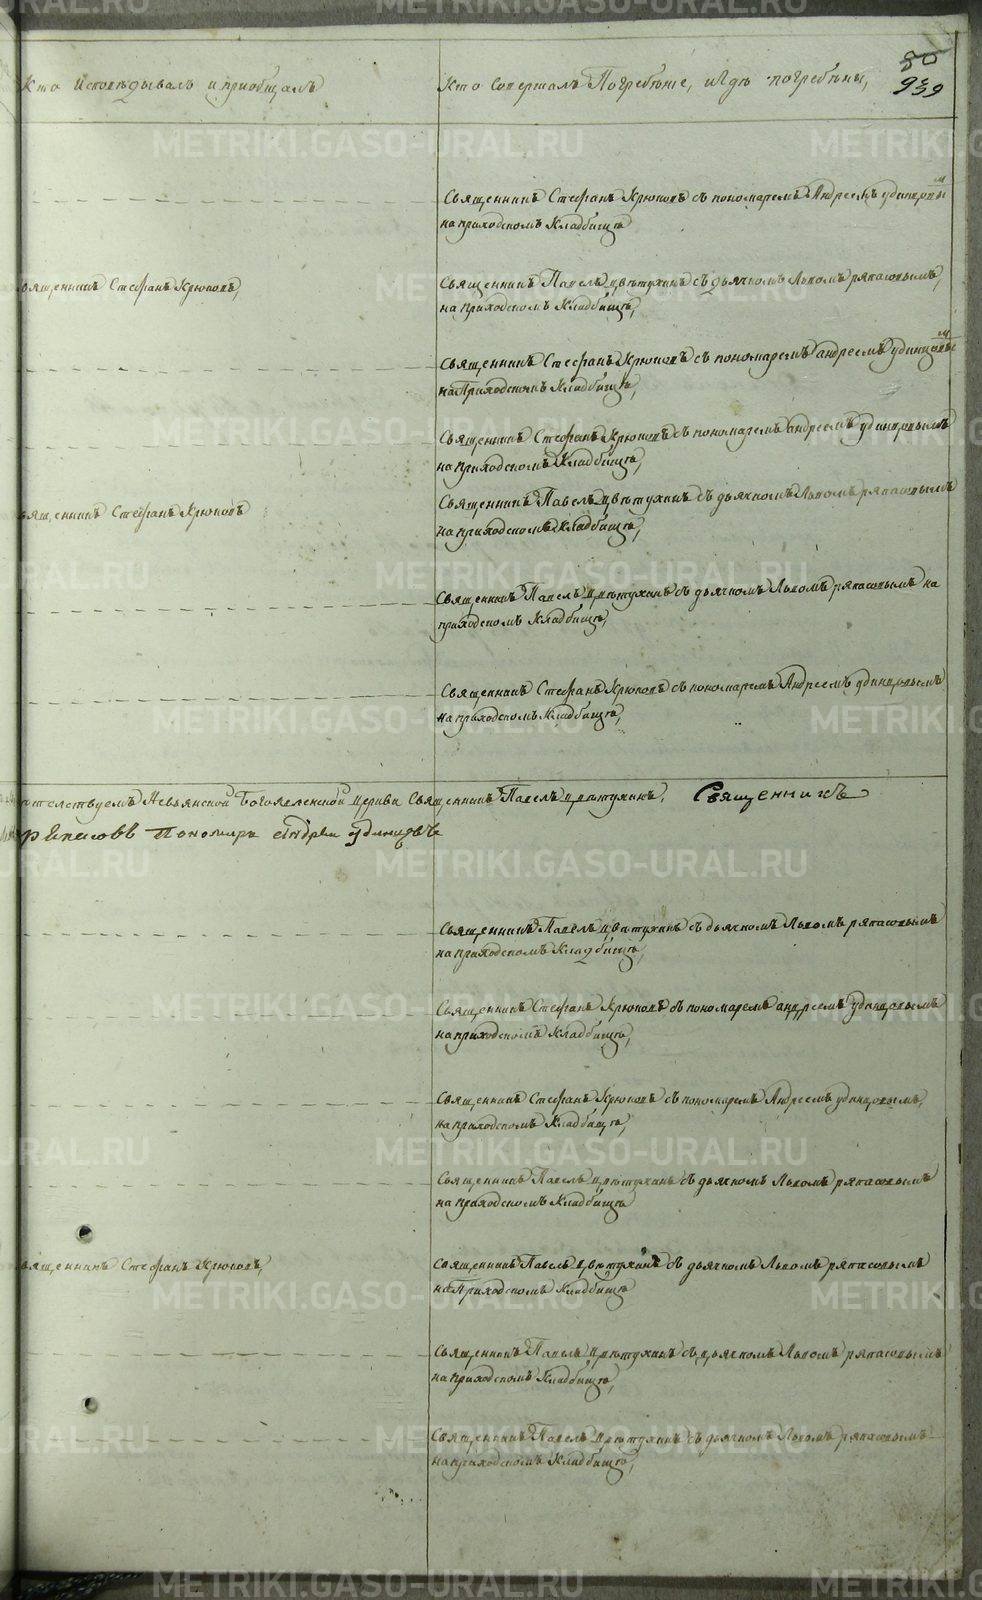 80
939
Кто исповѣдывалъ и приобщалъ
Кто совершалъ Погребѣніе, и гдѣ погребѣны,
Священникъ Стефанъ Крюковъ съ пономаремъ Андреемъ удинцовым
на приходскомъ Кладбищѣ
вященникъ Стефанъ Крюковъ,
Священникъ Павелъ Цвѣтухинъ съ дьячкомъ Львомъ ряпасовымъ,
на приходскомъ Кладбищѣ,
Священникъ Стефанъ Крюковъ съ пономаремъ андреемъ удинцовым
на Приходскомъ Кладбищѣ,
Священникъ Стефанъ Крюковъ съ пономаремъ андреемъ удинцовымъ
на приходскомъ Кладбищѣ,
вященникъ Стефанъ Крюковъ
Священникъ Павелъ Цвѣтухинъ съ дьячкомъ Львомъ ряпасовымъ
на приходскомъ Кладбищѣ,
Священникъ Павелъ Цвѣтухинъ съ дьячкомъ Львомъ ряпасовымъ на
приходскомъ Кладбищѣ,
Священникъ Стефанъ Крюковъ съ пономаремъ Андреемъ удинцовымъ
на приходскомъ Кладбищѣ,
ѣтелствуемъ Невьянской Богоявленской Церкви Священникъ Павелъ Цвѣтухинъ, Священникъ
рѧпасовъ Пономарь Андреи Удинцовъ
Священникъ Павелъ Цвѣтухинъ съ дьячкомъ Львомъ ряпасовымъ
на приходскомъ Кладбищѣ,
Священникъ Стефанъ Крюковъ съ пономаремъ андреемъ удинцовымъ
на приходскомъ Кладбищѣ,
Священникъ Стефанъ Крюковъ съ пономаремъ Андреемъ удинцовымъ,
на приходскомъ Кладбищѣ,
Священникъ Павелъ Цвѣтухинъ съ дьячкомъ Львомъ ряпасовымъ
на приходскомъ Кладбищѣ
вященникъ Стефанъ Крюковъ,
Священникъ Павелъ Цвѣтухинъ съ дьячкомъ Львомъ ряпасовымъ
на Приходскомъ Кладбищѣ
Священникъ Павелъ Цвѣтухинъ съ дьячкомъ Львомъ ряпасовымъ
на приходскомъ Кладбищѣ,
Священникъ Павелъ Цвѣтухинъ съ дьячкомъ Львомъ ряпасовымъ
на приходскомъ Кладбищѣ,
METRIKI.GASO-URAL.RU